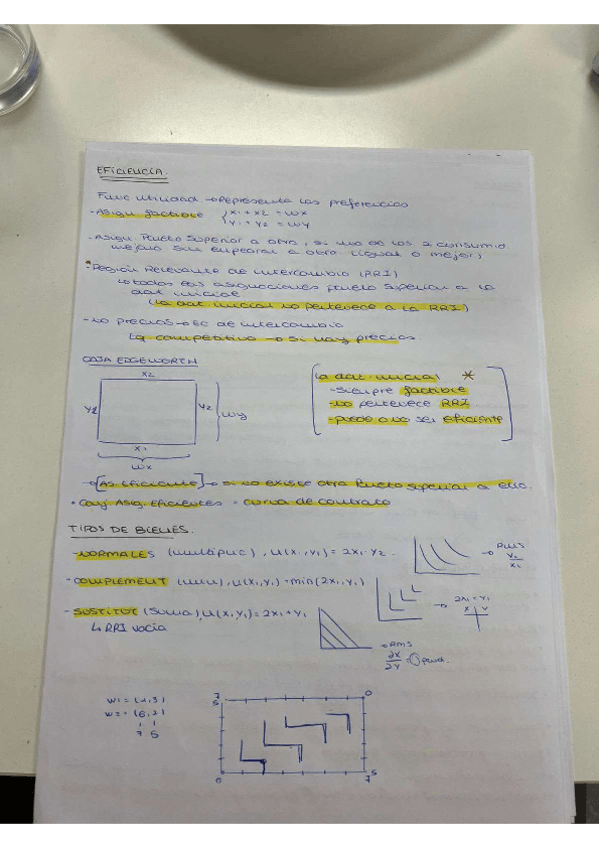 EFICIENCIA.
Func utilidad → Representa las preferencias
- Asign factible { x1 + x2 = wx
y1 + y2 = wy
- Asign Pareto Superior a otra, si uno de los 2 consumid
mejora sin empeorar a otro (igual o mejor)
* Región Relevante de intercambio (RRI)
↳ todas las asignaciones pareto superior a la
dot inicial
(la dot inicial no pertenece a la RRI)
- no precios → EC de intercambio
Eq competitivo → si hay precios
CAJA EDGEWORTH
x2
y2
y2
wy
x1
wx
la dot inicial *
- siempre factible
- no pertenece RRI
- puede o no ser eficiente
→ [As eficiente] → si no existe otra Pareto Superior a ella.
• Conj Asig. Eficientes = curva de contrato
TIPOS DE BIENES.
- NORMALES (multiplic), u(x1, y1) = 2x1 · y2.
→ RMS
y2
x1
- COMPLEMENT (min), u(x1, y1) = min(2x1, y1)
→ 2x1 = y1
x y
- SUSTITUT (suma), u(x1, y1) = 2x1 + y1
↳ RRI vacía
→ RMS
∂x
∂y
w1 = (1,3)
w2 = (6,2)
7 5
7
5
0
0
5
7